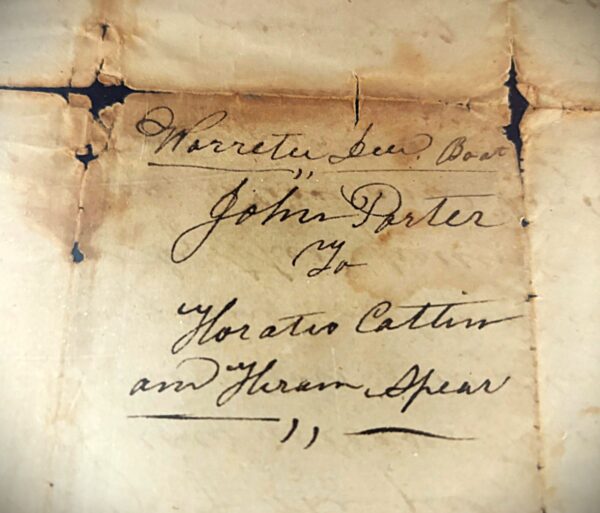 Warretee Dee. Boat
John Porter
To
Horatio Cattin
and Hiram Spear